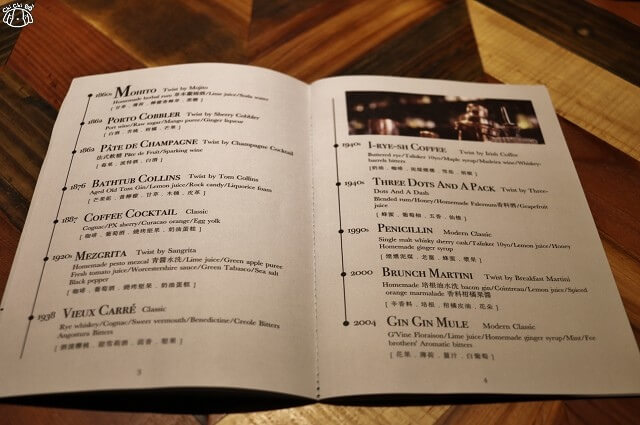 Chi Chi Boi
1860s MOHITO Twist by Mojito
Homemade herbal rum 草本蘭姆酒/Lime juice/Soda water
1862 PORTO COBBLER Twist by Sherry Cobbler
Port wine/Raw sugar/Mango puree/Ginger liqueur
[ 白酒 . 杏桃 . 柑橘 . 芒果 ]
1862 PÂTE DE CHAMPAGNE Twist by Champagne Cocktail
法式軟糖 Pâte de Fruit/Sparking wine
1876 BATHTUB COLLINS Twist by Tom Collins
Aged Old Tom Gin/Lemon juice/Rock candy/Liquorice foam
1887 COFFEE COCKTAIL Classic
Cognac/PX sherry/Curacao orange/Egg yolk
[ 咖啡 . 葡萄酒 . 燒烤堅果 . 奶油蛋糕 ]
1920s MEZGRITA Twist by Sangrita
Homemade pesto mezcal 青醬水洗/Lime juice/Green apple puree
Fresh tomato juice/Worcestershire sauce/Green Tabasco/Sea salt
Black pepper
[ 咖啡 . 葡萄酒 . 燒烤堅果 . 奶油蛋糕 ]
1938 VIEUX CARRÉ Classic
Rye whiskey/Cognac/Sweet vermouth/Benedictine/Creole Bitters
Angostura Bitters
3
1940s I-RYE-SH COFFEE Twist by Irish Coffee
Buttered rye/Talisker 10yo/Maple syrup/Madeira wine/Whiskey-
barrels bitters
1940s THREE DOTS AND A PACK Twist by Three-
Dots And A Dash
Rye/Lemon/Honey/Homemade Falernum香料酒/Grapefruit
juice
[ 蜂蜜 . 葡萄柚 . 五香 . 仙楂 ]
1990s PENICILLIN Modern Classic
Single malt whisky sherry cask/Talisker 10yo/Lemon juice/Honey
Homemade ginger syrup
[ 煙燻泥煤 . 老薑 . 蜂蜜 . 檸檬 ]
2000 BRUNCH MARTINI Twist by Breakfast Martini
Homemade 培根油水洗 bacon gin/Cointreau/Lemon juice/Spiced
orange marmalade 香料柑橘果醬
[ 辛香料 . 培根 . 柑橘皮油 . 花朵 ]
2004 GIN GIN MULE Modern Classic
G'Vine Floraison/Lime juice/Homemade ginger syrup/Mint/Fee
brothers' Aromatic bitters
[ 花果 . 薄荷 . 薑汁 . 白葡萄 ]
4